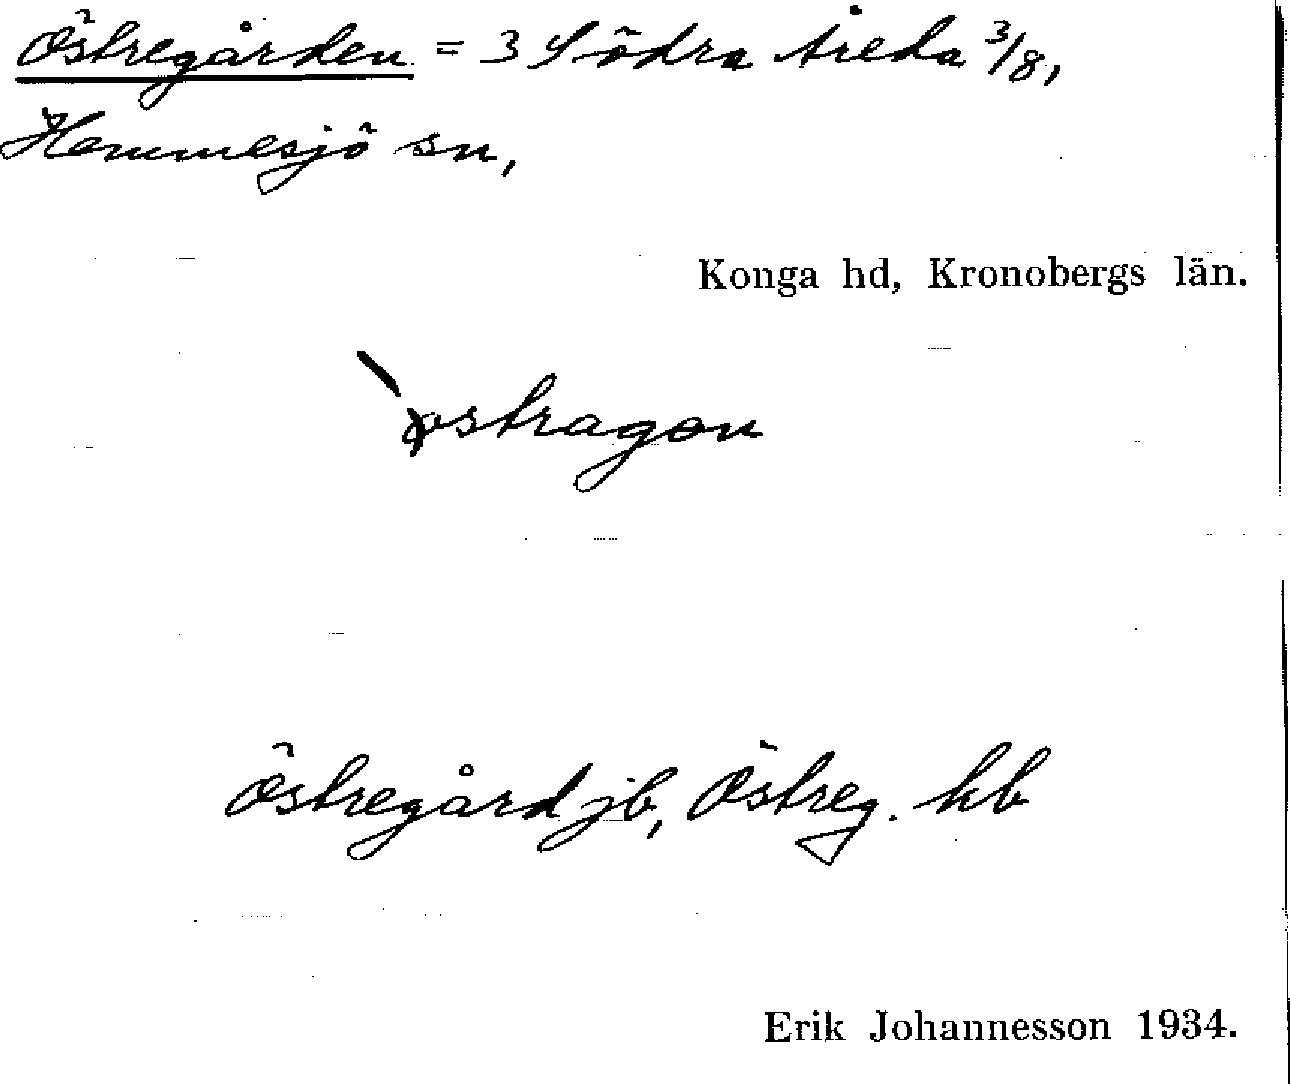 Östregården = 3 Södra Åreda 3/8,
Hemmesjö sn,
Konga hd, Kronobergs län.
Östregård jb, Östreg. kb
Erik Johannesson 1934.